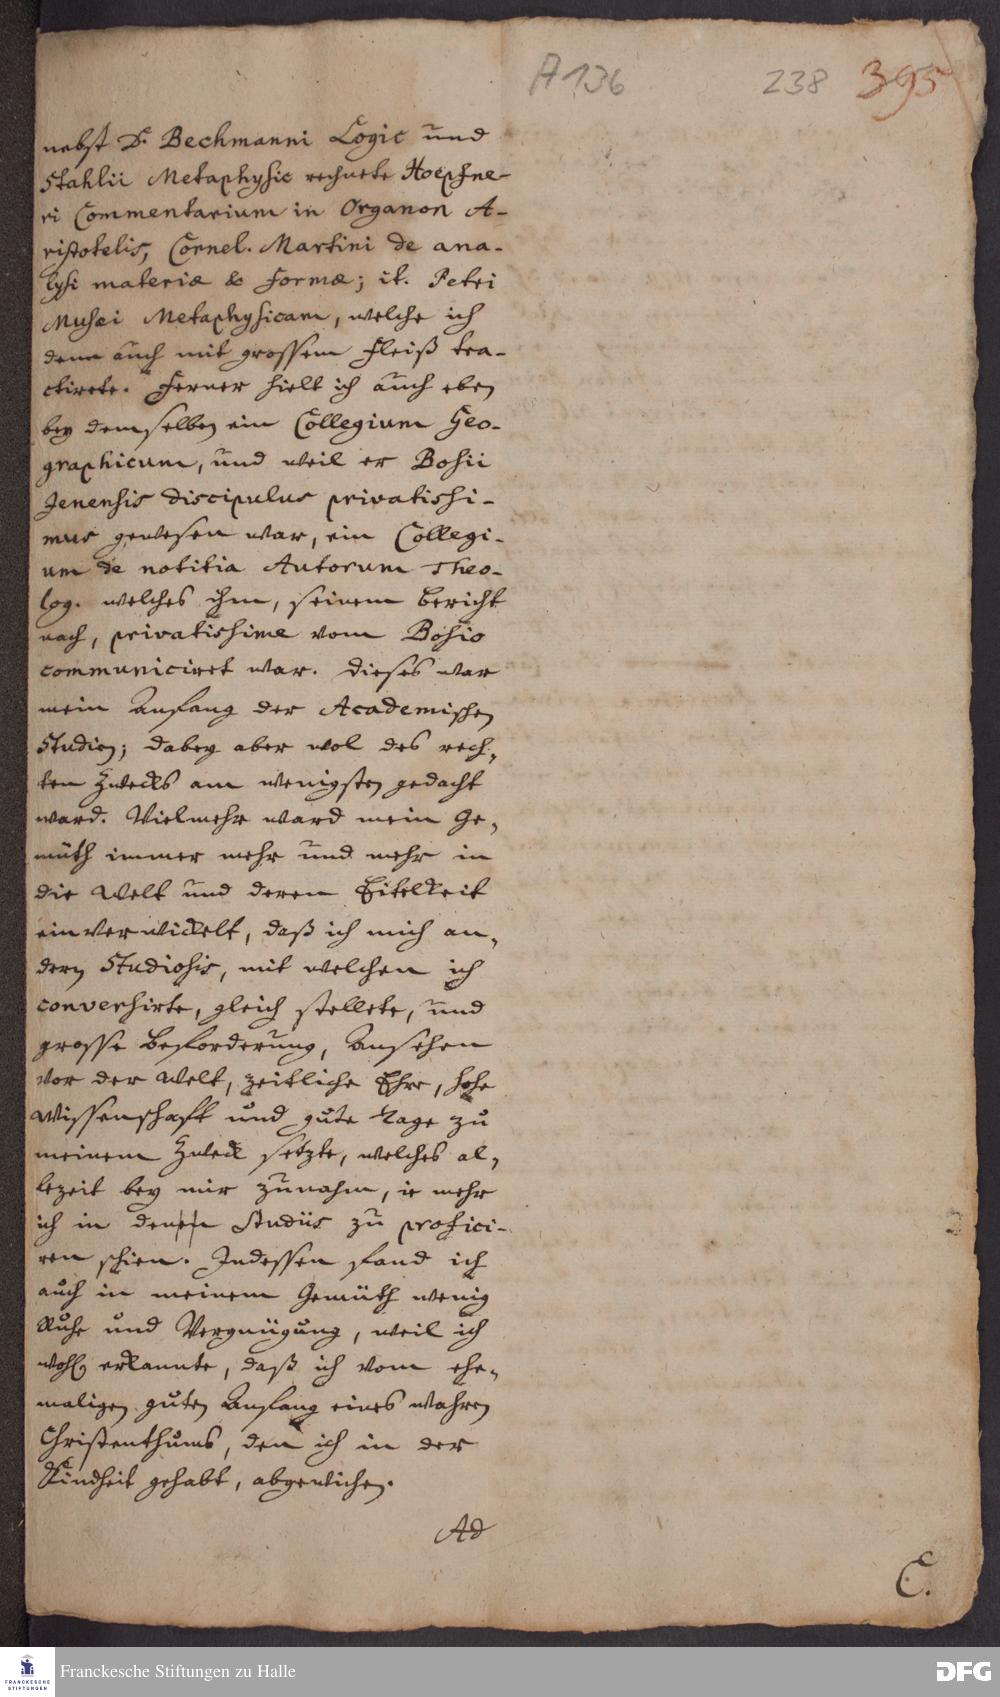 A 136 238 395
nebst D. Bechmanni Logic und
Stahlii Metaphysic rechnete Hoepfne-
ri Commentarium in Organon A-
ristotelis, Cornel. Martini de ana-
lysi materiæ & formæ; it. Petri
Musæi Metaphysicam, welche ich
denn auch mit grossem Fleiß tra-
ctirete. Ferner hielt ich auch eben
bey demselben ein Collegium Geo-
graphicum, und weil er Bosii
Jenensis discipulus privatissi-
mus gewesen war, ein Collegi-
um de notitia Autorum Theo-
log. welches ihm, seinem bericht
nach, privatissime vom Bosio
communiciret war. Dieses war
mein Anfang der Academischen
Studien; dabey aber wol des rech-
ten Zwecks am wenigsten gedacht
ward. Vielmehr ward mein Ge-
müth immer mehr und mehr in
die Welt und deren Eitelkeit
einverwickelt, daß ich mich an-
dern Studiosis, mit welchen ich
conversirte, gleich stellete, und
grosse beforderung, Ansehen
vor der Welt, zeitliche Ehre, hohe
Wissenschaft und gute Tage zu
meinem Zweck setzte, welches al-
lezeit bey mir zunahm, ie mehr
ich in denen Studiis zu profici-
ren schien. Indessen fand ich
auch in meinem Gemüth wenig
Ruhe und Vergnügung, weil ich
wohl erkannte, daß ich vom ehe-
maligen guten Anfang eines wahren
Christenthums, den ich in der
Kindheit gehabt, abgewichen.
Ad
C.
FRANCKESCHE STIFTUNGEN
Franckesche Stiftungen zu Halle
DFG